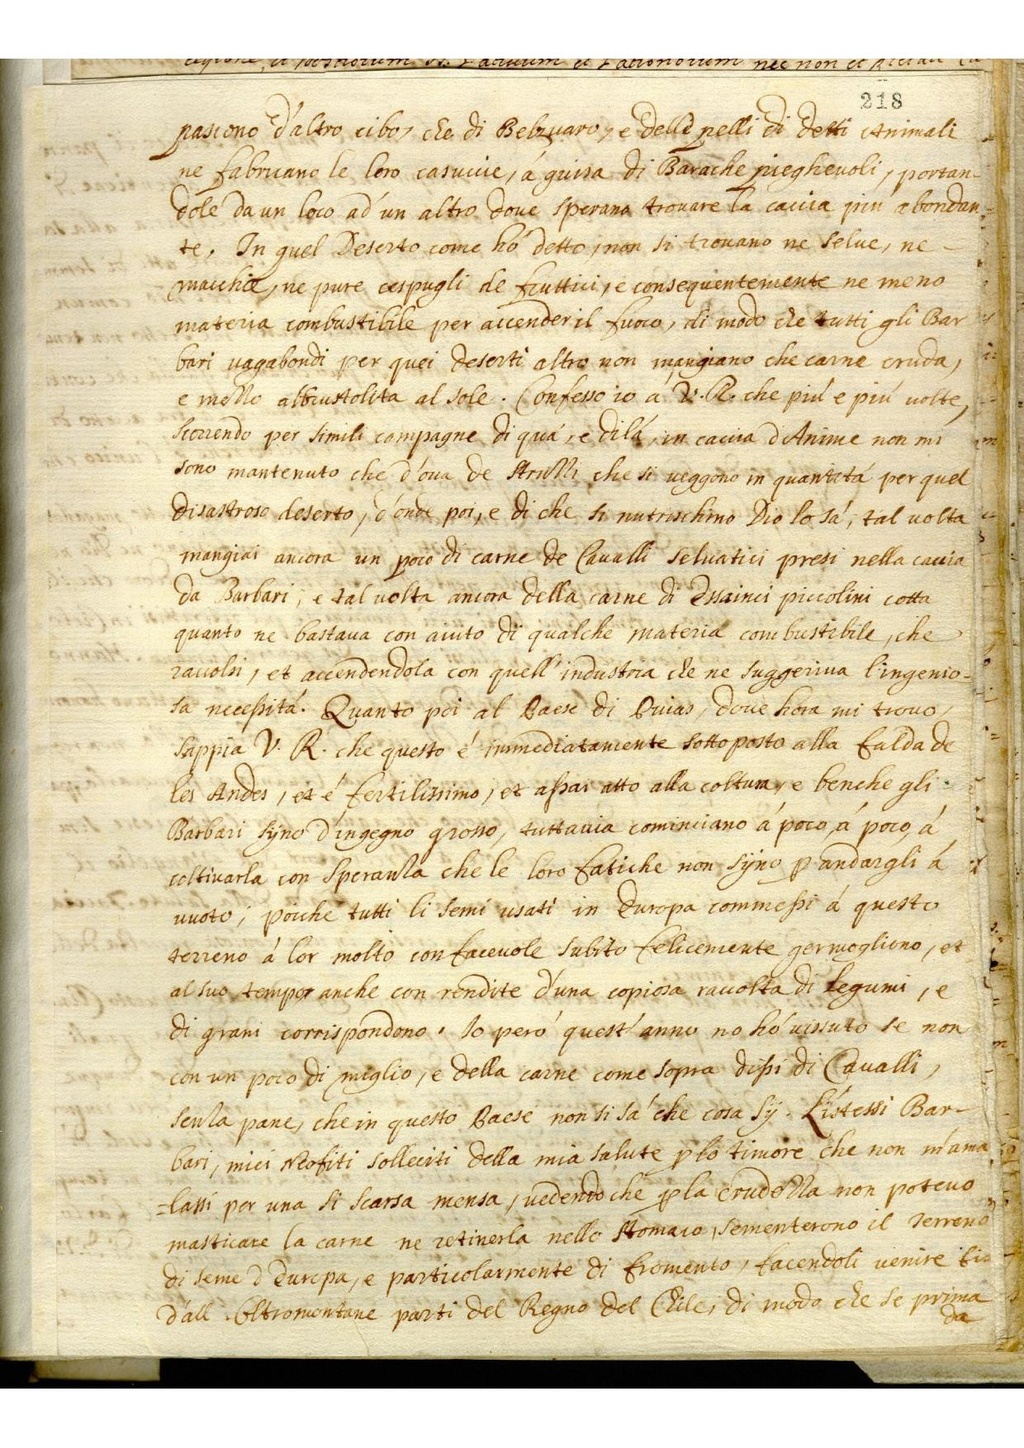 218
pascono d'altro cibo, che di Belzuaro, e delle pelli di detti Animali
ne fabricano le loro casuccie, á guisa di Barache pieghevoli, portan-
dole da un loco ad un altro dove sperana trovare la caccia piu abondan-
te, In quel Deserto come hó detto, non si trovano ne selve, ne
macchie, ne pure cespugli de fruttici, e consequentemente ne meno
materia combustibile per accender il fuoco, di modo che tutti gli Bar
bari vagabondi per quei deserti altro non mangiano che carne cruda,
e mezzo abbrustolita al sole. Confesso io á V. R. che piú e piú volte,
scorrendo per simili campagne di quá, e dilá, in caccia d'Anime non mi
sono mantenuto che d'ova de struzzi, che si veggono in quantitá per quel
disastroso deserto, d'onde poi, e di che si nutrischino Dio lo sá, tal volta
mangiai ancora un poco di carne de Cavalli selvatici presi nella caccia
da Barbari, e tal volta ancora della carne di piccolini cotta
quanto ne bastava con aiuto di qualche materia combustibile, che
raccolsi, et accendendola con quell'industria che ne suggeriva l'ingenio-
sa necessitá. Quanto poi al Paese di Puias, dove hora mi trovo,
sappia V. R. che questo é immediatamente sottoposto alla falda de
les Andes, et é fertilissimo, et assai atto alla coltura, e benche gli
Barbari sijno d'ingegno grosso, tuttavia cominciano á poco, á poco, á
coltivarla con speranza che le loro fatiche non sijno p andargli á
vuoto; poiche tutti li semi usati in Europa commessi á questo
terreno á lor molto confacevole subito felicemente germogliono, et
al suo tempo anche con rendite d'una copiosa raccolta di legumi, e
di grani corrispondono. Io peró quest'anno no hó vissuto se non
con un poco di miglio, e della carne come sopra dissi di Cavalli,
senza pane, che in questo Paese non si sá che cosa sij. L'istessi Bar-
bari, miei Neofiti solleciti della mia salute p lo timore che non m'ama
=lassi per una si scarsa mensa, vedendo che p la crudezza non potevo
masticare la carne ne retinerla nello stomaco, sementerono il terreno
di seme d'Europa, e particolarmente di fromento, facendoli venire fin
d'all'oltromontane parti del Regno del Chile, di modo che se prima
da